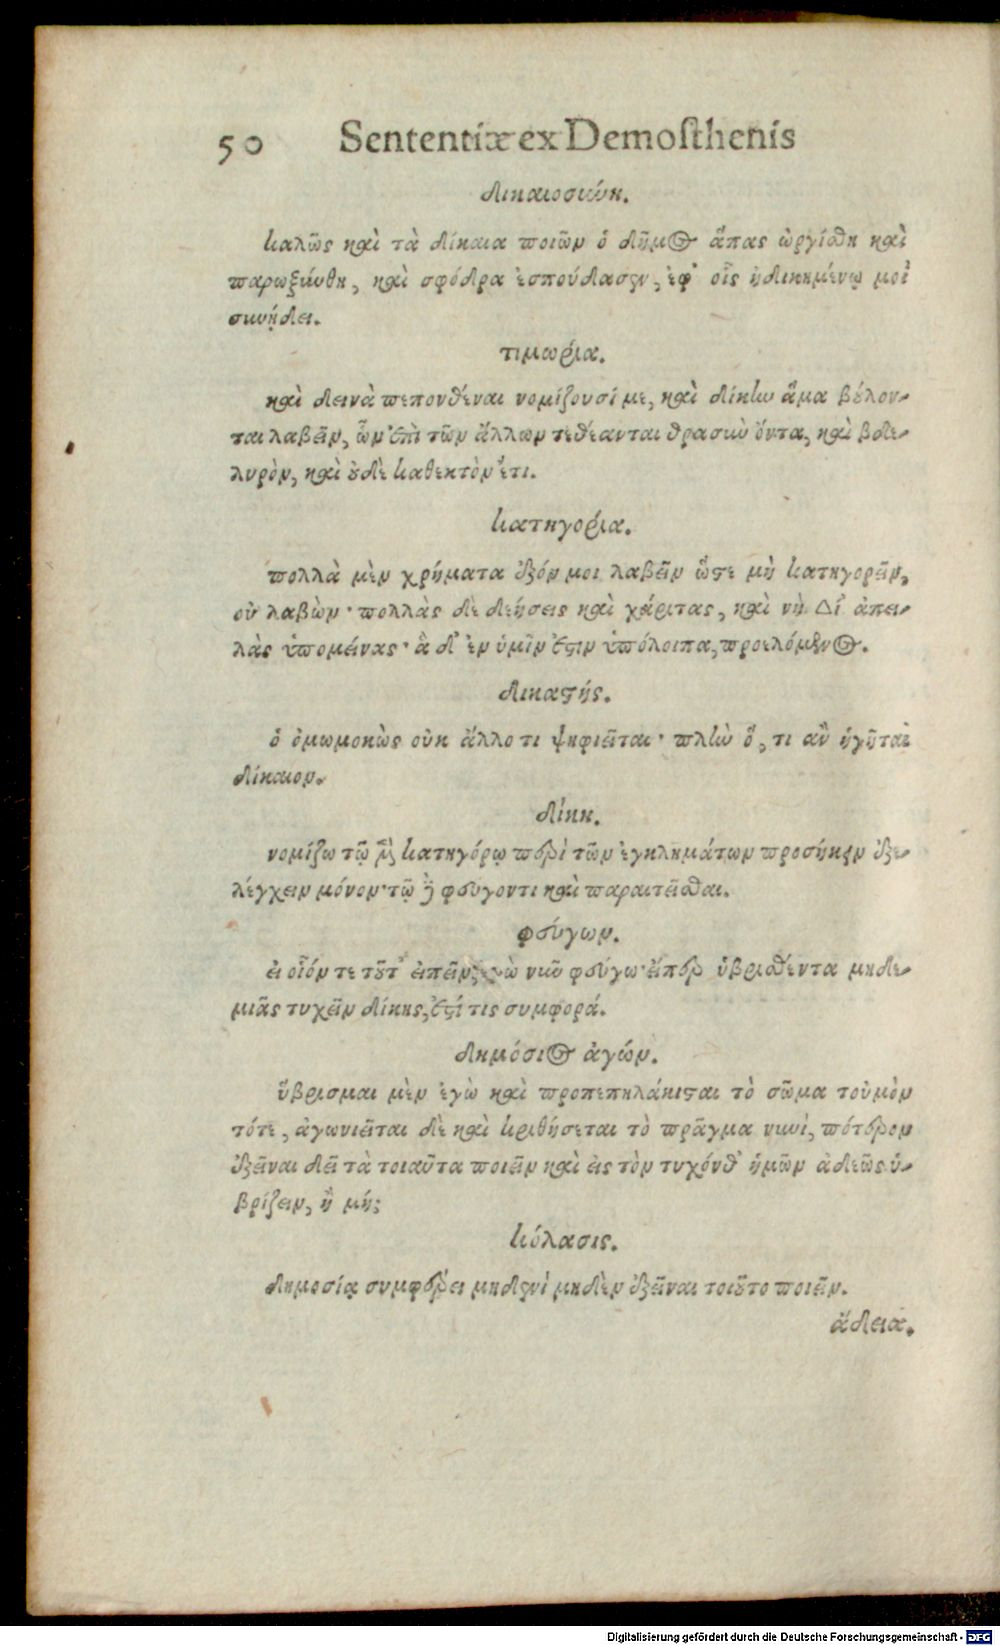 50 Sententiæ ex Demosthenis
δικαιοσύνη.
καλῶς καὶ τὰ δίκαια ποιῶν ὁ δῆμος ἅπας ὠργίσθη καὶ
παρωξύνθη, καὶ σφόδρα ἐσπούδασεν, ἐφ᾽ οἷς ἠδικημένῳ μοι
συνῄδει.
τιμωρία.
καὶ δεινὰ πεπονθέναι νομίζουσί με, καὶ δίκην ἅμα βούλον-
ται λαβεῖν, ὧν ἐπὶ τῶν ἄλλων τεθέανται θρασὺν ὄντα, καὶ βδε-
λυρὸν, καὶ οὐδὲ καθεκτὸν ἔτι.
κατηγορία.
πολλὰ μὲν χρήματα ἐξόν μοι λαβεῖν ὥστε μὴ κατηγορεῖν,
οὐ λαβὼν· πολλὰς δὲ δεήσεις καὶ χάριτας, καὶ νὴ Δί᾽ ἀπει-
λὰς ὑπομείνας· ἃ δ᾽ ἐν ὑμῖν ἐστιν ὑπόλοιπα, προελόμενος.
δικαστής.
ὁ ὀμωμοκὼς οὐκ ἄλλο τι ψηφιεῖται· πλὴν ὅ, τι ἂν ἡγῆται
δίκαιον.
δίκη.
νομίζω τῷ μὲν κατηγόρῳ περὶ τῶν ἐγκλημάτων προσήκειν ἐξε-
λέγχειν μόνον· τῷ δὲ φεύγοντι καὶ παραιτεῖσθαι.
φεύγων.
εἰ οἷόν τε τοῦτ᾽ εἰπεῖν, ἐγὼ νῦν φεύγω· εἴπερ ὑβρισθέντα μηδε-
μιᾶς τυχεῖν δίκης, ἐστί τις συμφορά.
δημόσιος ἀγών.
ὕβρισμαι μὲν ἐγὼ καὶ προπεπηλάκισται τὸ σῶμα τοὐμὸν
τότε, ἀγωνιεῖται δὲ καὶ κριθήσεται τὸ πρᾶγμα νυνὶ, πότερον
ἐξεῖναι δεῖ τὰ τοιαῦτα ποιεῖν καὶ εἰς τὸν τυχόνθ᾽ ἡμῶν ἀδεῶς ὑ-
βρίζειν, ἢ μή;
κόλασις.
δημοσίᾳ συμφέρει μηδενὶ μηδὲν ἐξεῖναι τοιοῦτο ποιεῖν.
ἄδεια.
Digitalisierung gefördert durch die Deutsche Forschungsgemeinschaft - DFG